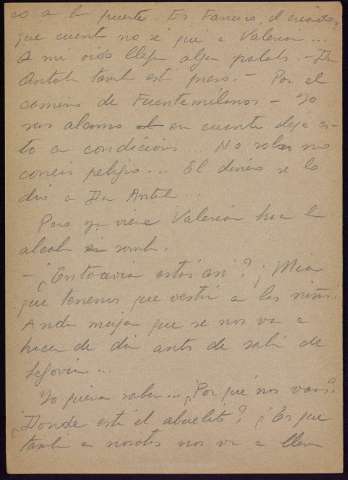 a la puerta. Es Fausino, el criado,
que cuenta no sé que a Valeriana...
A mis oidos llegan algunas palabras. — Don
Antolín también está preso. — Por el
camino de Fuentemilanos — Yo
nos alcanzo en cuanto deje es-
to en condiciones. No
correis peligro... El dinero se lo
di a Don
Pero ya viene Valeriana hacia la
alcoba
— ¿Todavia estás asi? ¡Mira
que tenemos que vestir a las niñas!
Anda mujer que se nos va a
hacer de dia antes de salir de
Segovia...
Yo quiero saber... ¿Por qué nos vamos?
¿Donde está el abuelito? ¿Es que
también a nosotros nos va a llevar